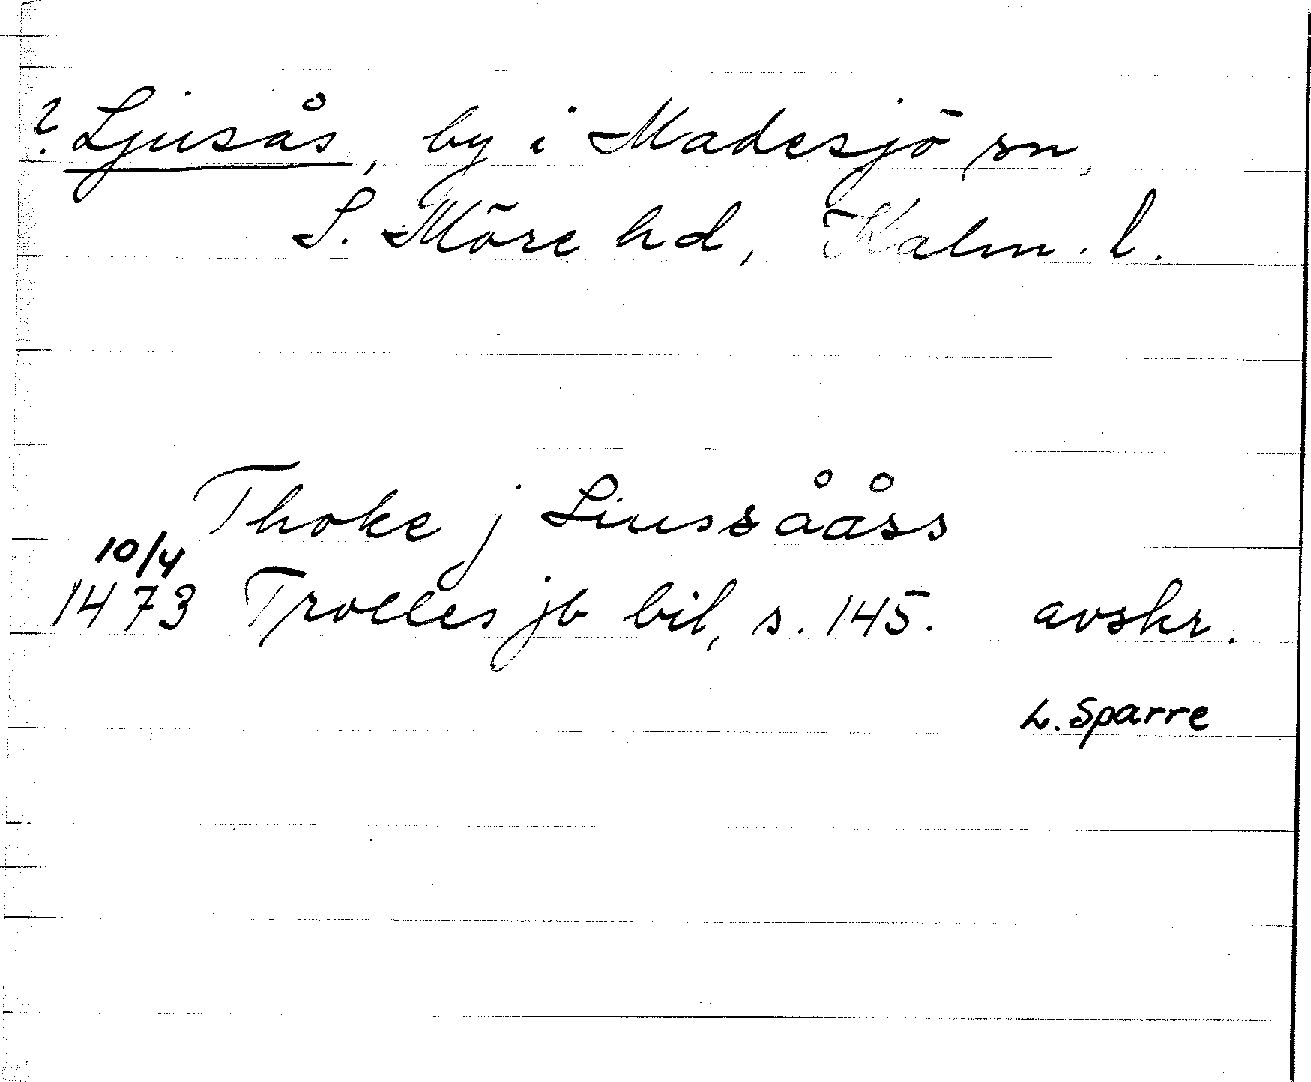 ? Ljusås, by i Madesjö sn,
S. Möre hd, Kalm. l.
Thoke j Liussååss
10/4
1473 Trolles jb bil, s. 145. avskr.
L. Sparre